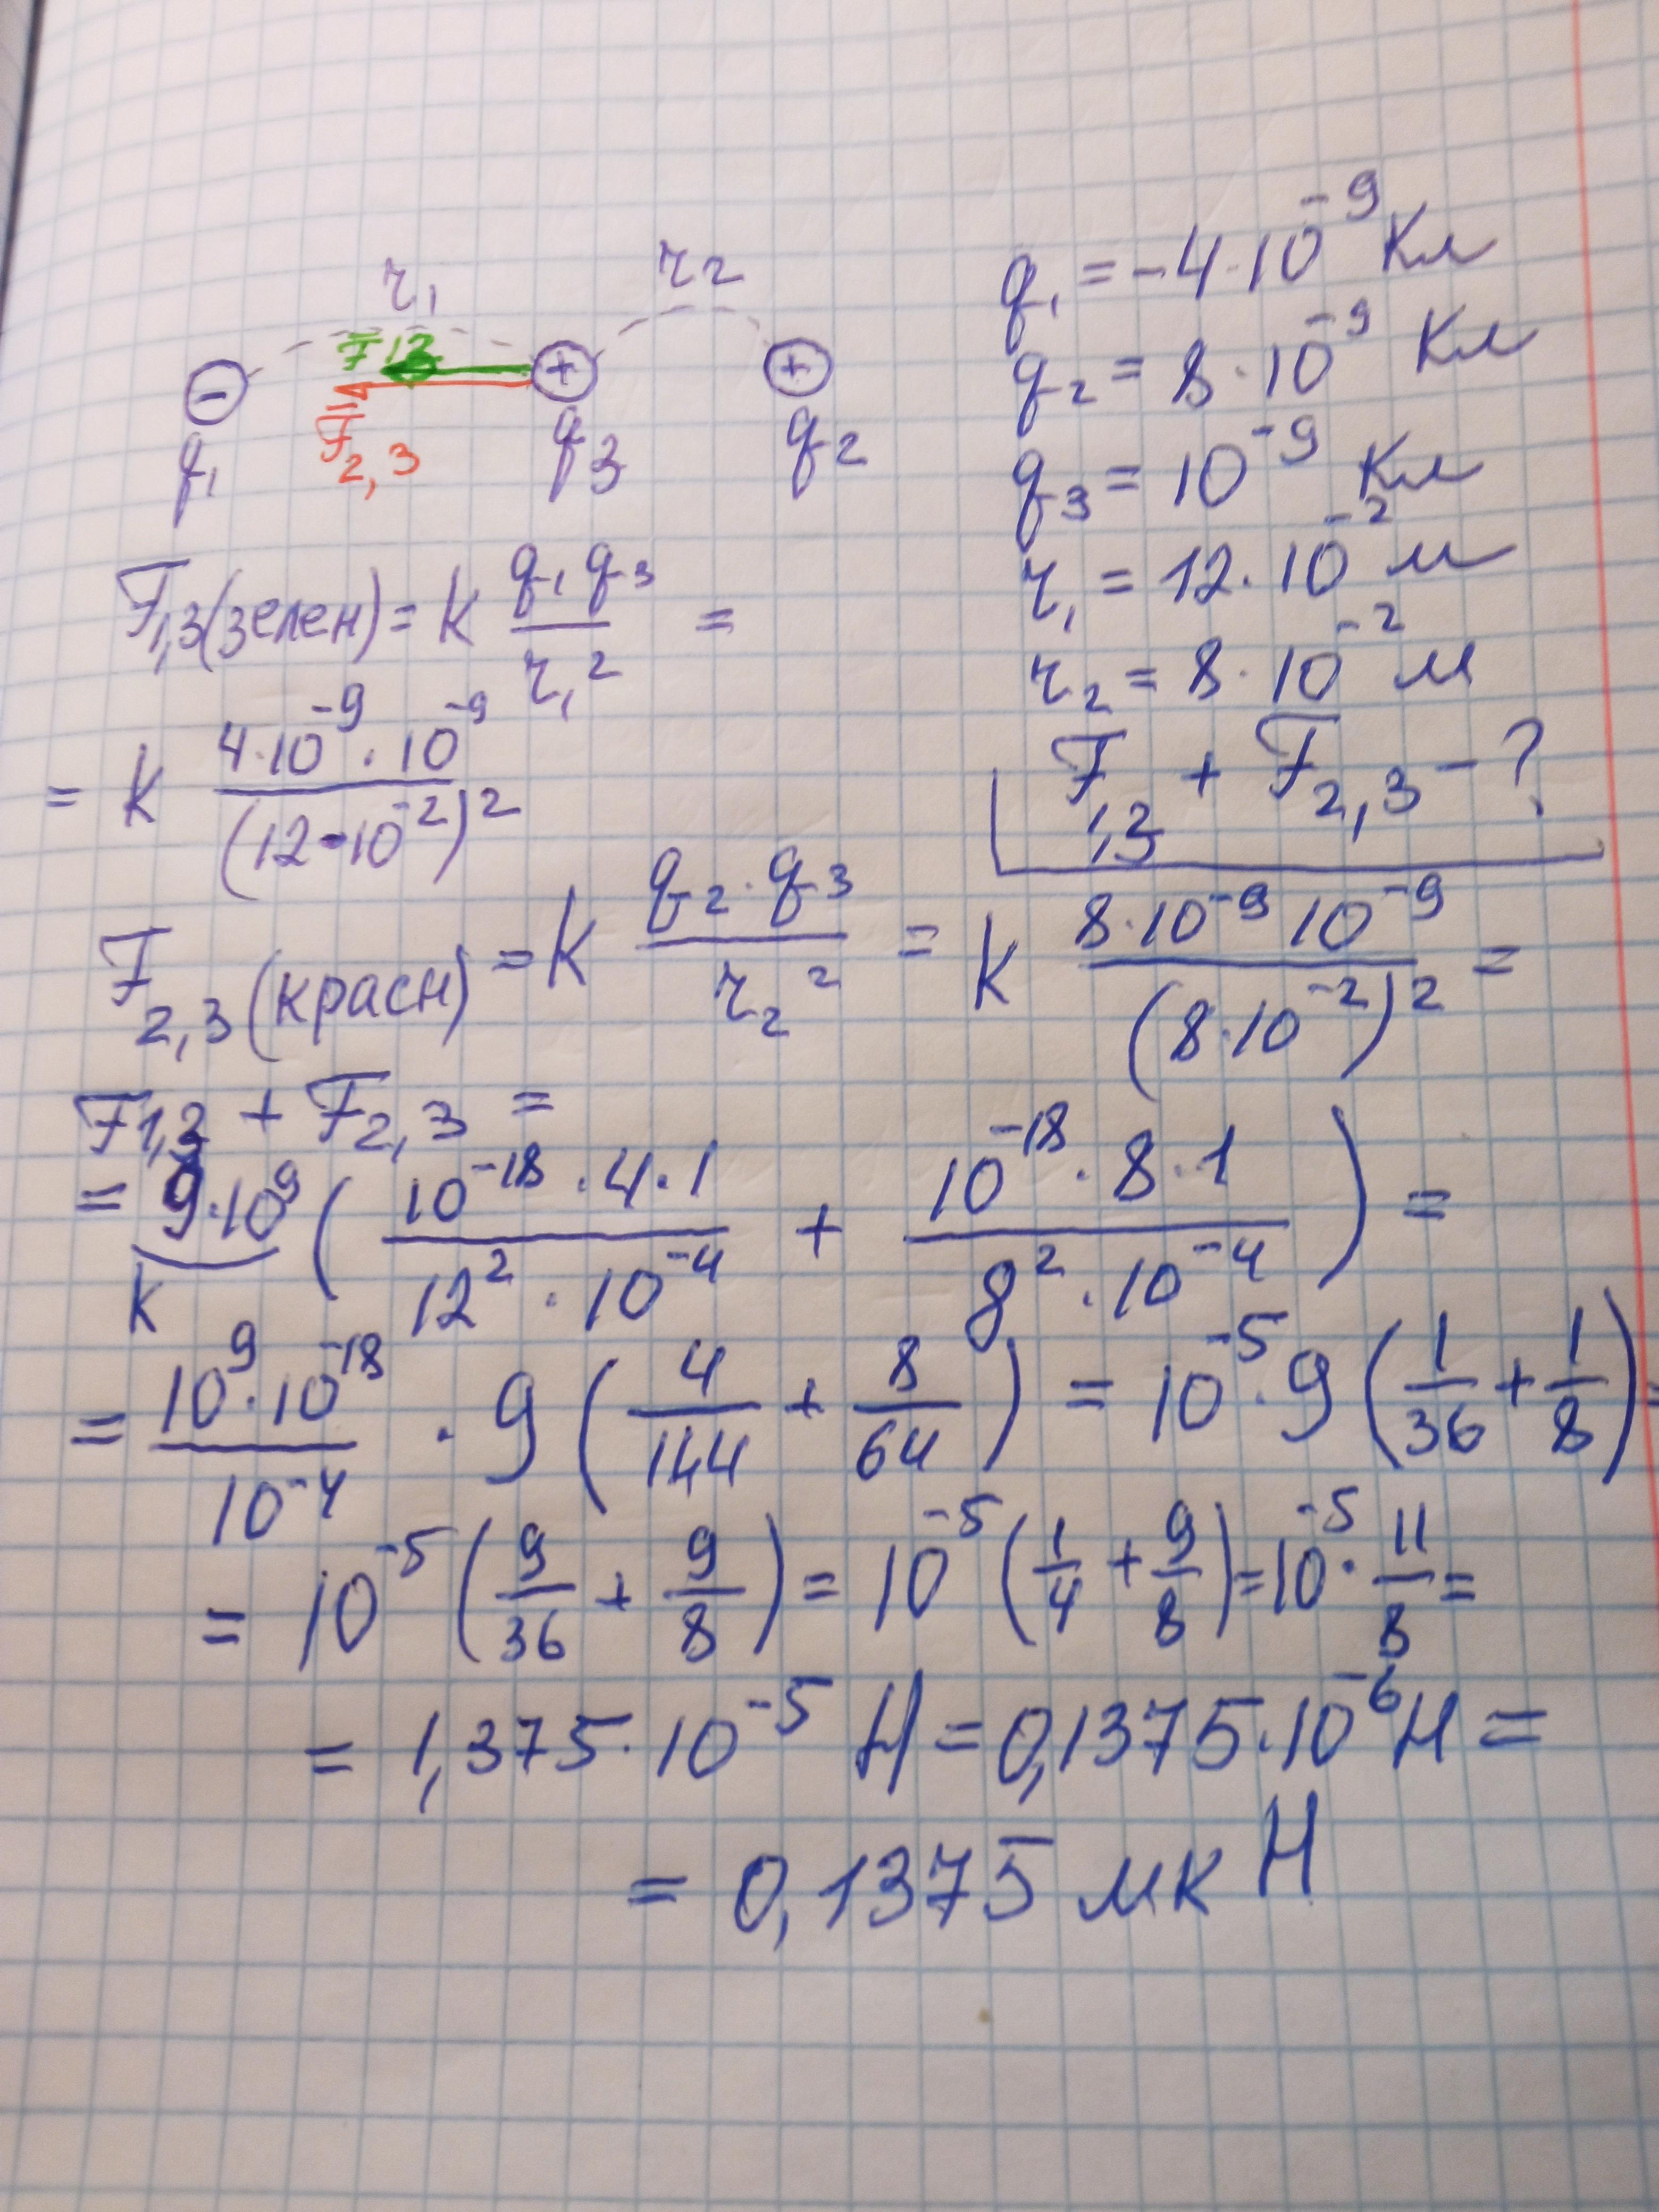 r₁ r₂
F̅₁₃
F̅₂,₃
q₁ q₃ q₂
q₁ = -4·10⁻⁹ Кл
q₂ = 8·10⁻⁹ Кл
q₃ = 10⁻⁹ Кл
r₁ = 12·10⁻² м
r₂ = 8·10⁻² м
F₁,₃ + F₂,₃ - ?
F₁,₃(зелен) = k q₁q₃/r₁² =
= k 4·10⁻⁹·10⁻⁹/(12·10⁻²)²
F₂,₃(красн) = k q₂·q₃/r₂² = k 8·10⁻⁹ 10⁻⁹/(8·10⁻²)² =
F₁,₃ + F₂,₃ =
= 9·10⁹ (10⁻¹⁸·4·1/12²·10⁻⁴ + 10⁻¹⁸·8·1/8²·10⁻⁴) =
k
= 10⁹·10⁻¹⁸/10⁻⁴ · 9 (4/144 + 8/64) = 10⁻⁵·9 (1/36 + 1/8) =
= 10⁻⁵ (9/36 + 9/8) = 10⁻⁵ (1/4 + 9/8) = 10⁻⁵ · 11/8 =
= 1,375·10⁻⁵ Н = 0,1375·10⁻⁶ Н =
= 0,1375 мк Н